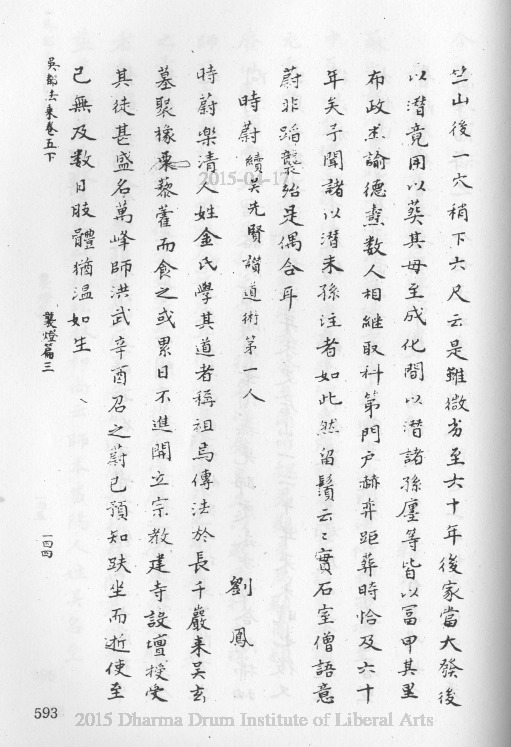 竺山後二穴稍下六尺云是雖微劣至六十年後家當大發後
以潛竟用以葬其母至成化間以潛諸孫廛等皆以冨甲其里
布政杰諭德燾數人相継取科第門户赫弈距葬時恰及六十
年矣予聞諸以潛耒孫注者如此然留鬚云〻實石室僧語意
蔚非蹈襲殆是偶合耳
時蔚 續吳先賢讃道術第一人
劉鳳
時蔚樂清人姓金氏學其道者稱祖焉傳法於長千巖来吴玄
墓聚橡栗藜藿而食之或累日不進開立宗教建寺設壇授受
其徒甚盛名萬峰師洪武辛酉召之蔚已預知趺坐而逝使至
已無及数日肢體猶温如生
吴都法乘卷五下
襲燈篇三
一四四
593
2015-04-17
2015 Dharma Drum Institute of Liberal Arts